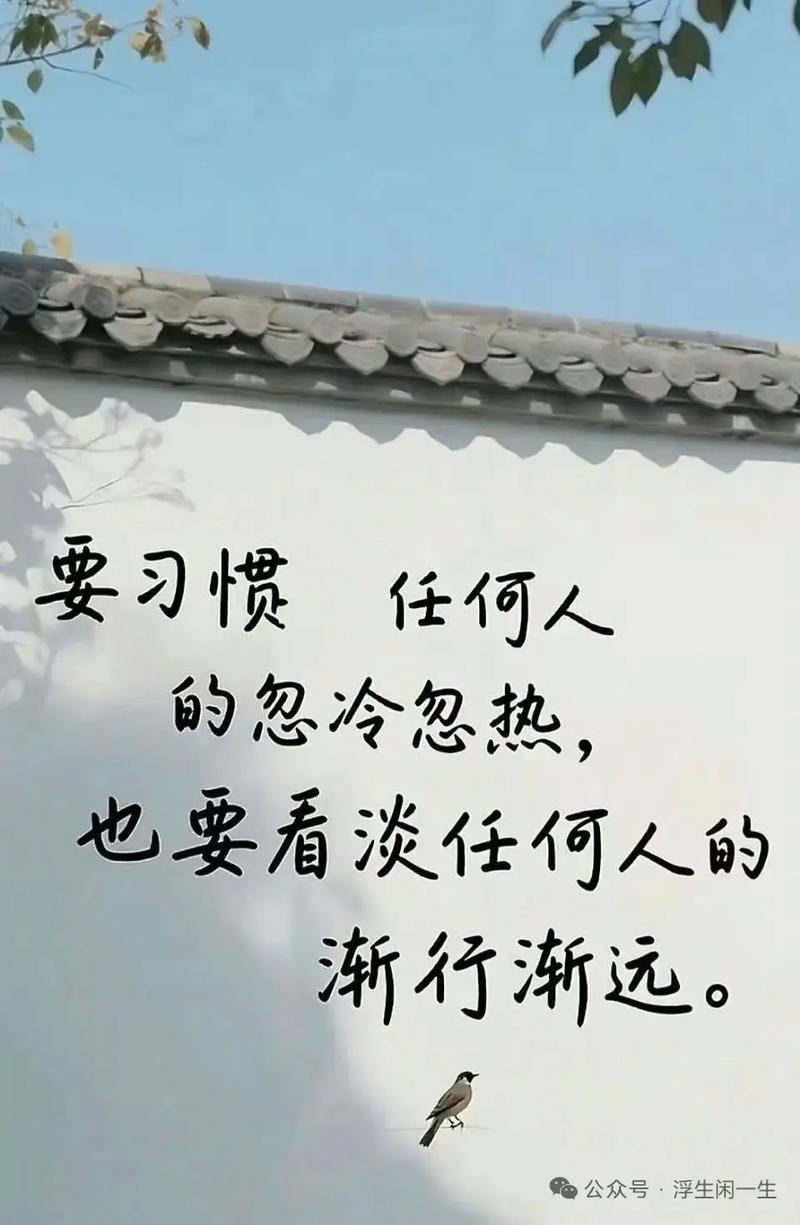 要习惯 任何人
的忽冷忽热，
也要看淡任何人的
渐行渐远。
公众号·浮生闲一生